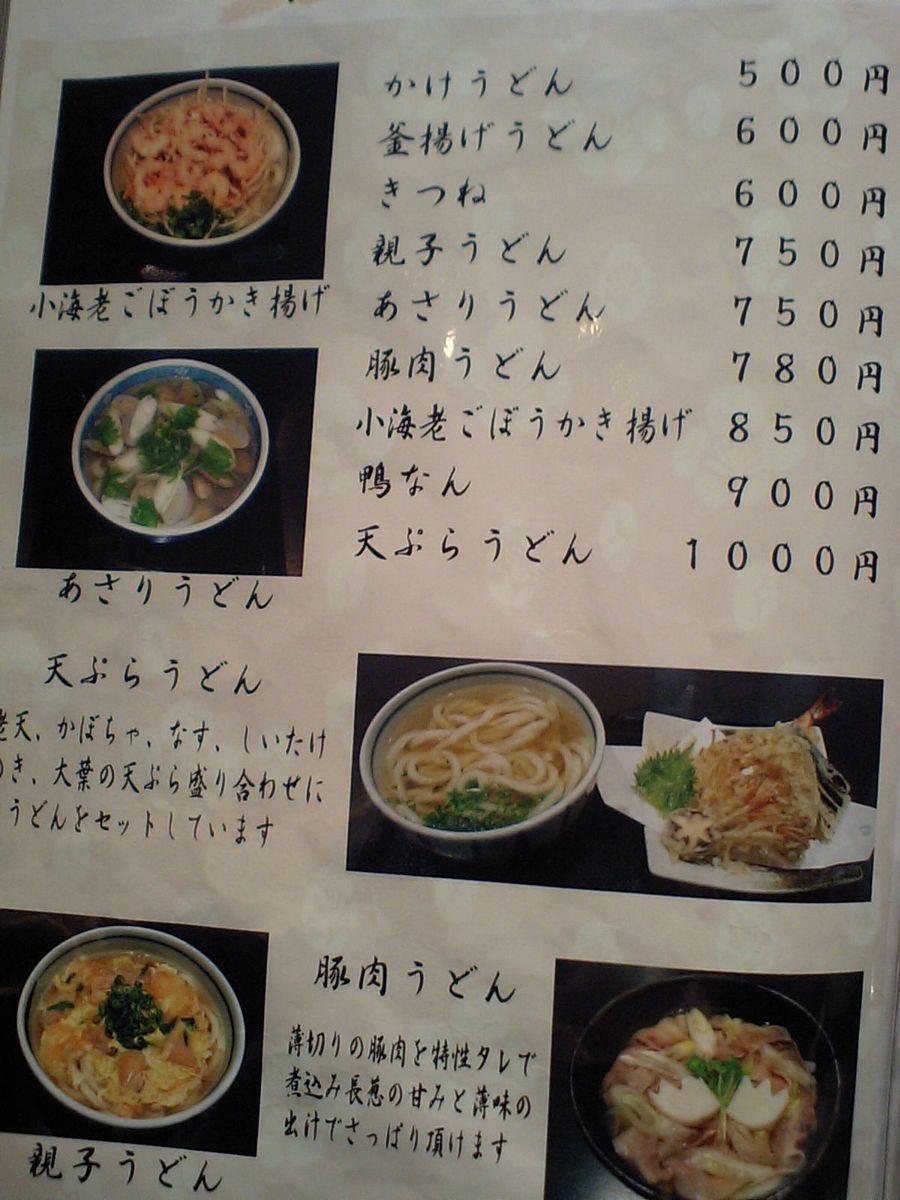 かけうどん 500円
釜揚げうどん 600円
きつね 600円
親子うどん 750円
あさりうどん 750円
豚肉うどん 780円
小海老ごぼうかき揚げ 850円
鴨なん 900円
天ぷらうどん 1000円
小海老ごぼうかき揚げ
あさりうどん
天ぷらうどん
老天、かぼちゃ、なす、しいたけ
き、大葉の天ぷら盛り合わせに
うどんをセットしています
親子うどん
豚肉うどん
薄切りの豚肉を特性タレで
煮込み長葱の甘みと薄味の
出汁でさっぱり頂けます